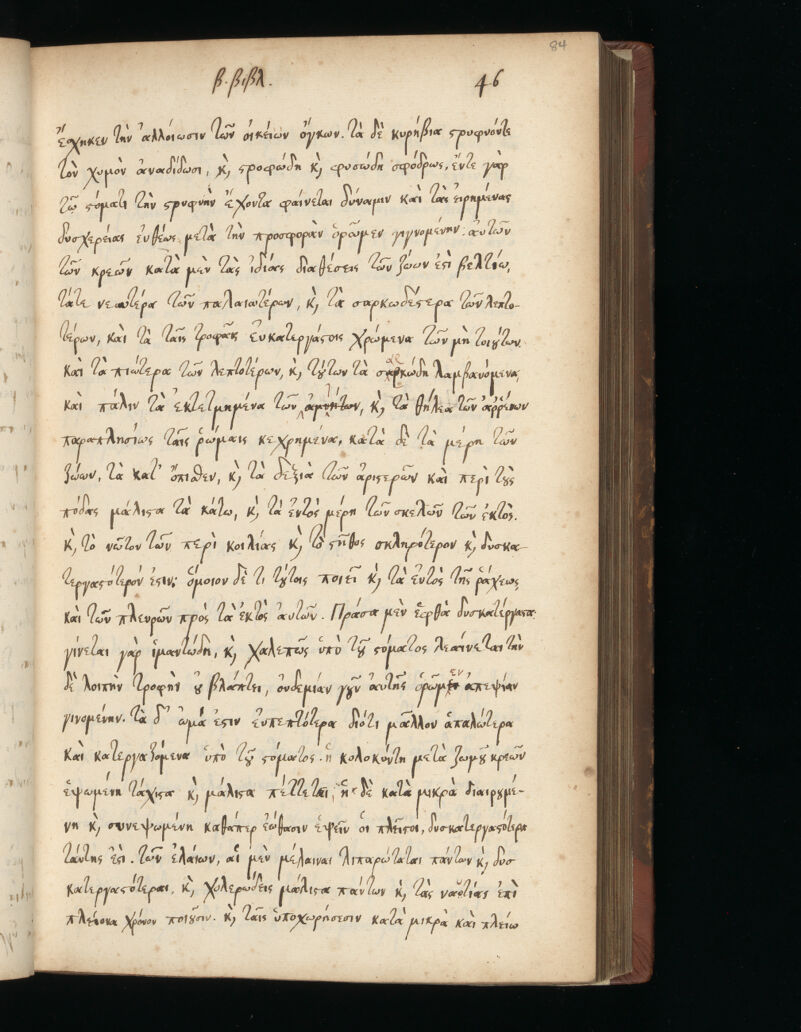 84
β. βιβλ. 46
ἔσχηκεν τὴν ἀλλοίωσιν τῶν οἰκείων ὄγκων. τὰ δὲ κυρήβια στρυφνόν τε
τὸν χυμὸν ἀναδίδωσι, κ̀ στροφώδη κ̀ φυσώδη σφόδρως, ἔν τε γὰρ
τῷ στόματι τὴν στρυφνὴν ἔχοντα φαίνεται δύναμιν καὶ τὰς εἰρημένας
δυσχερείας εὐθέως μετὰ τὴν προσφορὰν ὁρῶμεν γιγνομένην. αὐτῶν
τῶν κρεῶν κατὰ μὲν τὰς ἰδίας διαθέσεις τῶν ζώων ἐστὶ βελτίω,
τά τε νεώτερα τῶν παλαιωτέρων, κ̀ τὰ σαρκωδέστερα τῶν λεπτο-
τέρων, καὶ τὰ ταῖς τροφαῖς εὐκατεργάστοις χρώμενα τῶν μὴ τοιούτων
καὶ τὰ πιώτερα τῶν λεπτοτέρων, κ̀ τούτων τὰ σαρκώδη λαμβανόμενα,
καὶ πάλιν τὰ ἐκτετμημένα τῶν ἀμνήτων, κ̀ τὰ θήλεα τῶν ἀρρένων
παραπλησίως ταῖς ῥώμαις κεχρημένα, κατὰ δὲ τὰ μέρη τῶν
ζώων, τὰ κατ' ὄπισθεν, κ̀ τὰ δεξιὰ τῶν ἀριστερῶν καὶ περὶ τοὺς
πόδας μάλιστα τὰ κάτω, κ̀ τὰ ἐντὸς μέρη τῶν σκελῶν τῶν ἐκτὸς.
κ̀ τὸ νῶτον τῶν περὶ κοιλίας κ̀ τὸ στῆθος σκληρότερον κ̀ δυσκα-
τεργαστότερόν ἐστιν· ὅμοιον δέ τι τούτοις ποιεῖ κ̀ τὰ ἐντὸς τῆς ῥάχεως
καὶ τῶν πλευρῶν πρὸς τὰ ἐκτὸς αὐτῶν. Πράσα μὲν ἑφθὰ δυσκατέργαστα
γίνεται γὰρ ἱμαντώδη, κ̀ χαλεπῶς ὑπὸ τοῦ στόματος λεαίνεται τὴν
δὲ λοιπὴν τροφὴν οὐ βλάπτει, οὐδεμίαν γοῦν αὐτῆς ὁρῶμεν ἀπεψίαν
γινομένην. τὰ δ' ὠμά ἐστιν εὐπεπτότερα διότι μᾶλλον ἁπαλώτερα
καὶ κατεργαζόμενα ὑπὸ τοῦ στόματος. ἡ κολοκύντη μετὰ ζωμοῦ κρεῶν
ἑψωμένη τάχιστα κ̀ μάλιστα πέττεται, ἡ δὲ κατὰ μικρὰ διαιρουμέ-
νη κ̀ συνεψωμένη καθάπερ εἰώθασιν ἑψεῖν οἱ πλεῖστοι, δυσκατεργαστότερα
ταύτης ἐστί. τῶν ἐλαίων, αἱ μὲν μέλαιναι λιπαρώταται πάντων κ̀ δυσ
κατεργαστότεραι, κ̀ χολερώδεις μάλιστα πάντων κ̀ τὰς ναυτίας ἐπὶ
πλείονα χρόνον ποιοῦσιν. κ̀ ταῖς ὑποχωρήσεσιν κατὰ μικρὰ καὶ πλείω